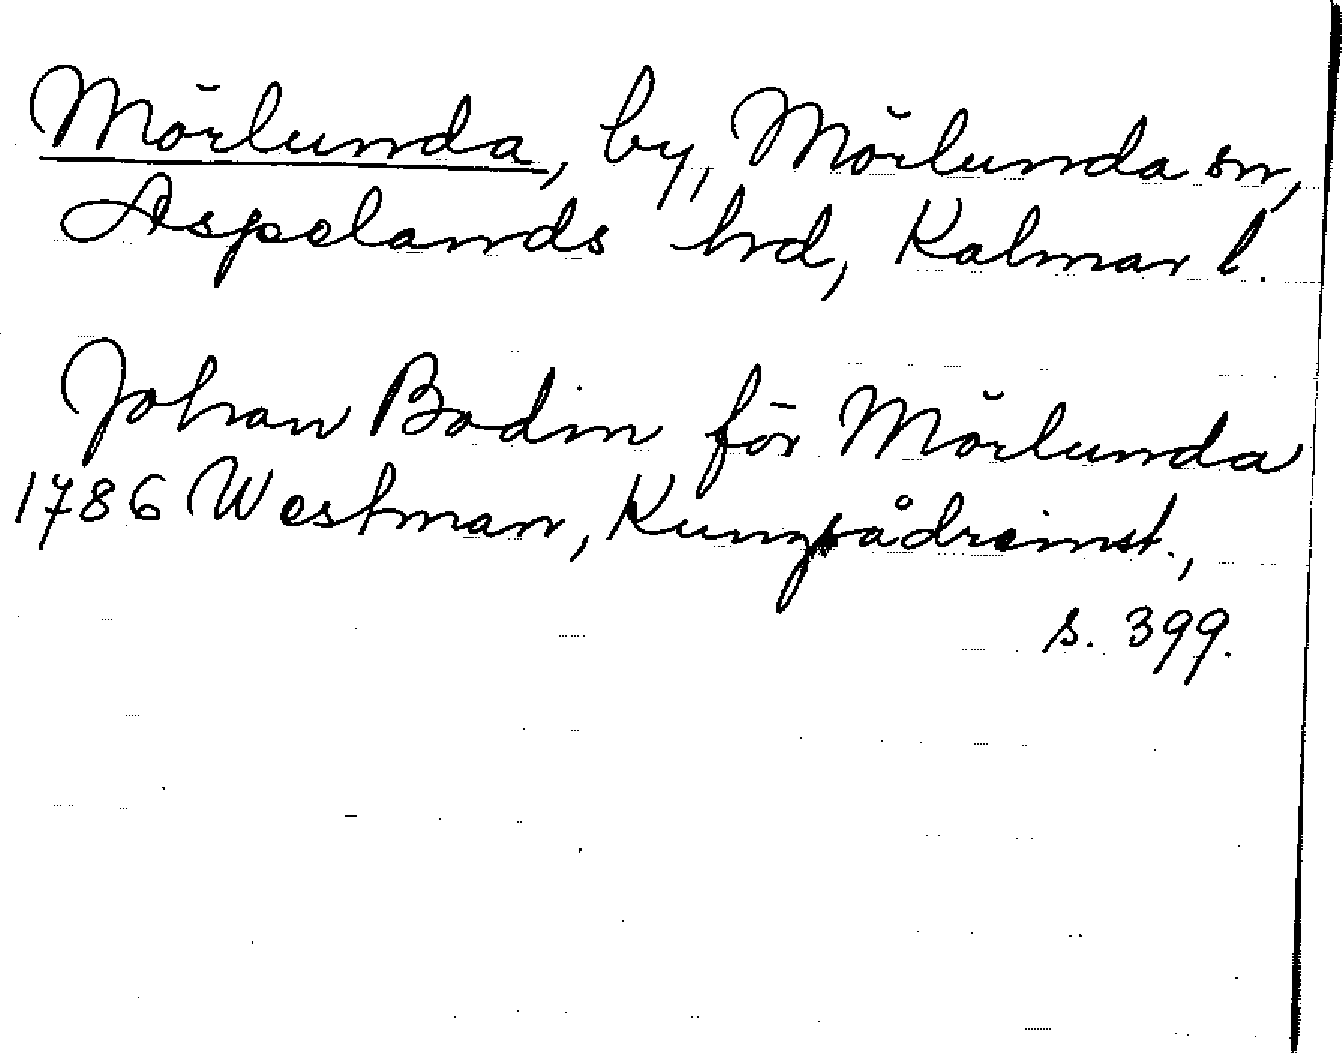 Mörlunda, by, Mörlunda sn,
Aspelands hrd, Kalmar l.
Johan Bodin för Mörlunda
1786 Westman, Kungsådreinst.,
s. 399.